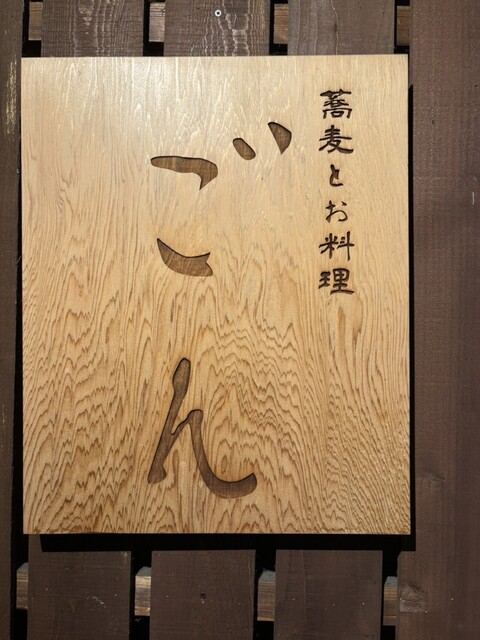 蕎麦とお料理
ごん